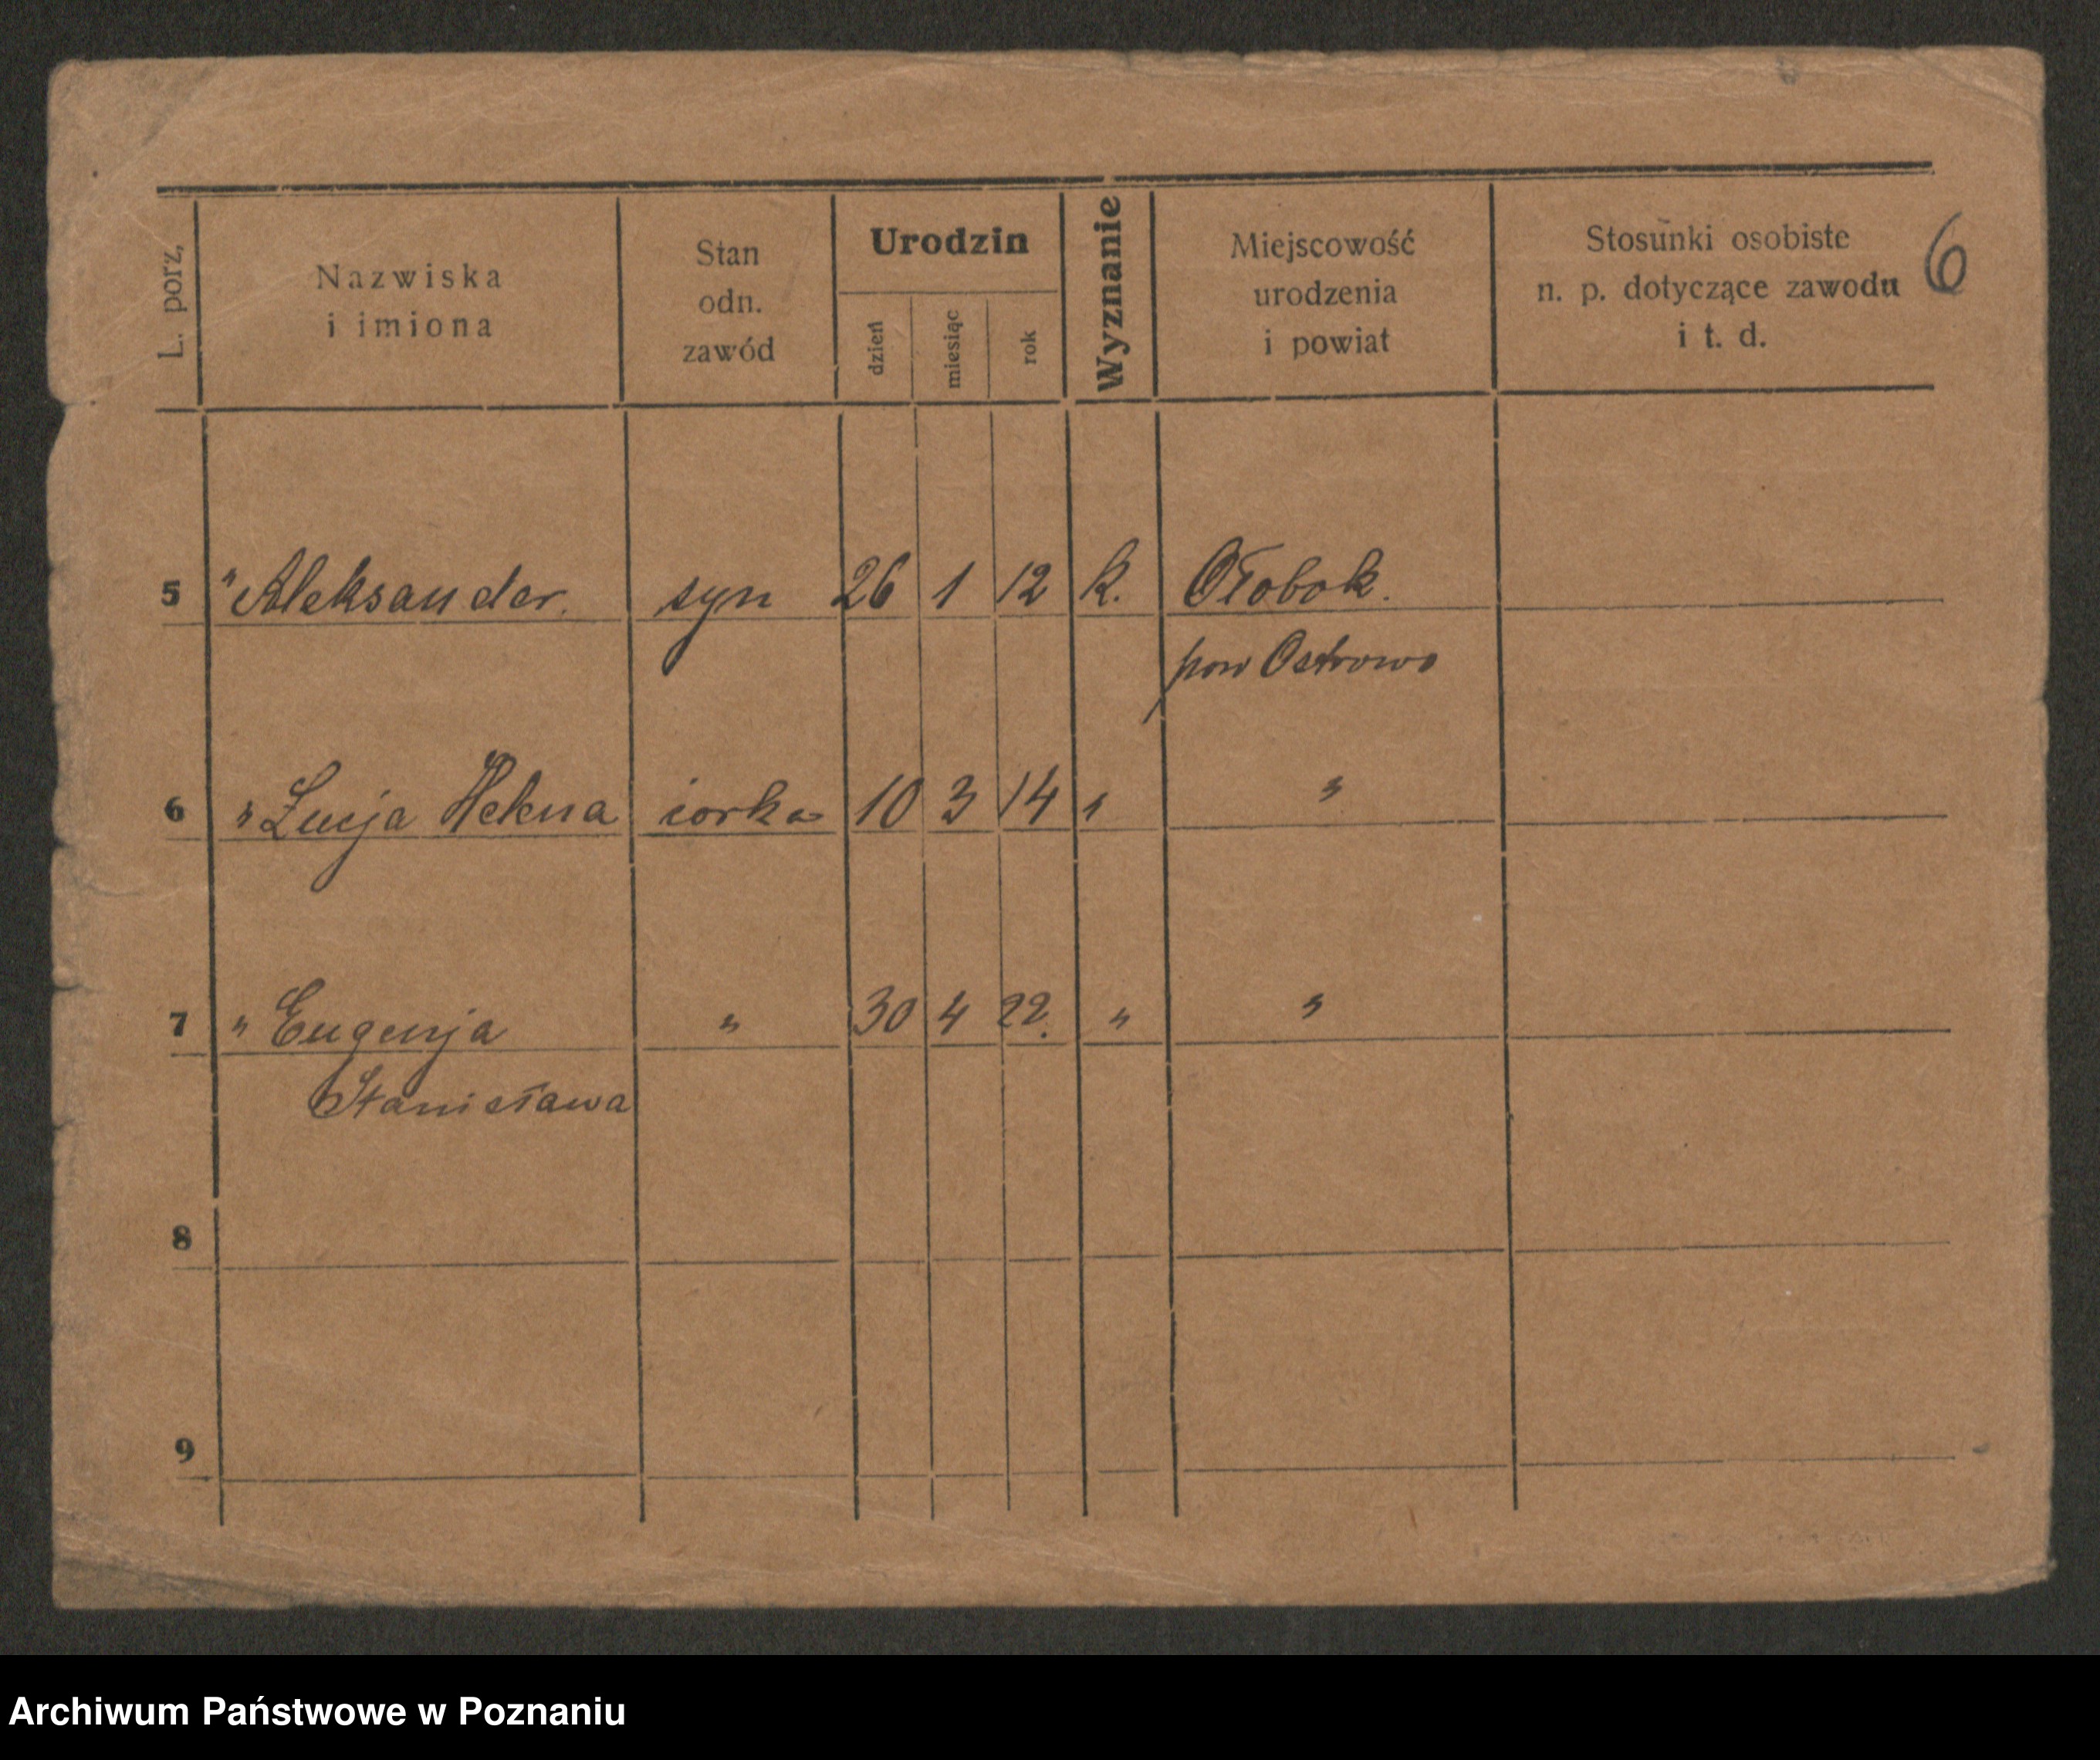 L. porz,
Nazwiska
i imiona
Stan
odn.
zawód
Urodzin
dzień
miesiąc
rok
Wyznanie
Miejscowość
urodzenia
i powiat
Stosunki osobiste
n. p. dotyczące zawodu
i t. d.
6
5 " Aleksander. syn 26 1 12 k. Ołobok.
pow Ostrowo
6 " Łucja Helena córka 10 3 14 " "
7 " Eugenja " 30 4 22. " "
Stanisława
8
9
Archiwum Państwowe w Poznaniu